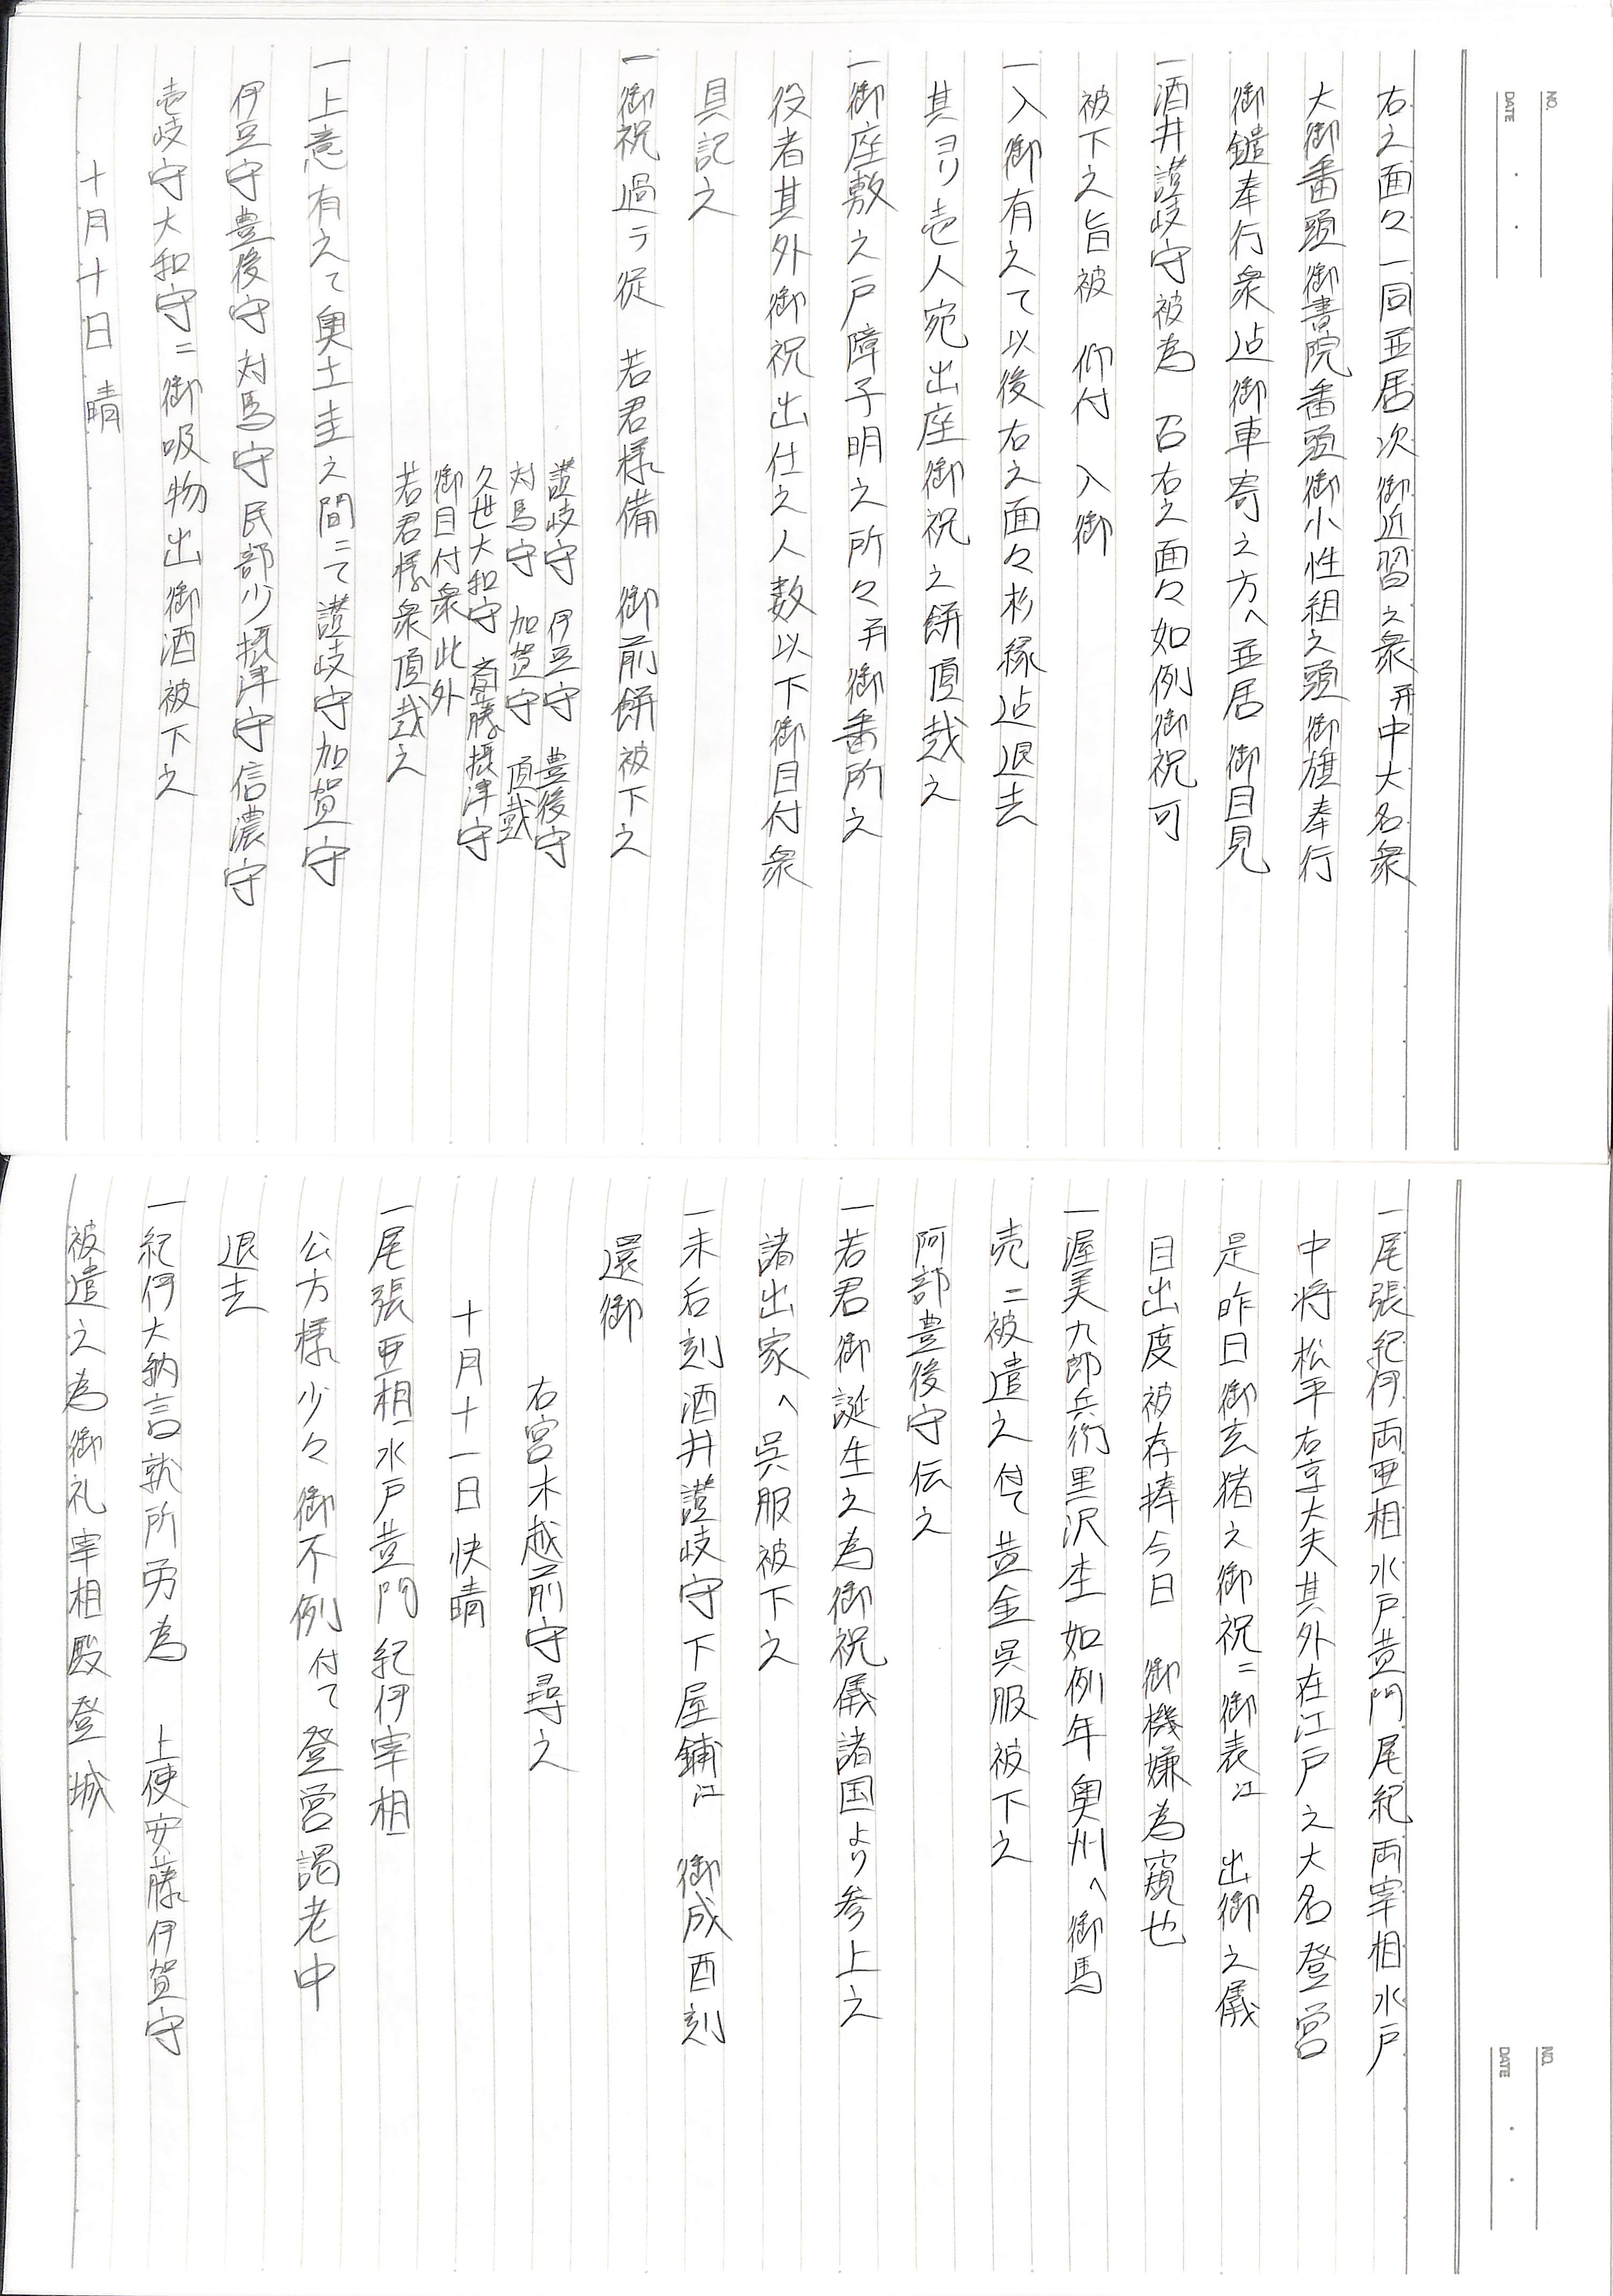 NO.
DATE
右之面々一同並居次御近習之衆并中大名衆
大御番頭御書院番頭御小性組之頭御旗奉行
御鑓奉行衆迠御車寄之方へ並居 御目見
一酒井讃岐守被為 召右之面々如例御祝可
被下之旨被 仰付 入御
一入御有之て以後右之面々杉縁迠退去
其ヨリ壱人宛出座御祝之餅頂戴之
一御座敷之戸障子明之所々并御番所之
役者其外御祝出仕之人数以下御目付衆
具記之
一御祝過テ従 若君様備 御前餅被下之
讃岐守 伊豆守 豊後守
対馬守 加賀守 頂戴
久世大和守 斎藤摂津守
御目付衆此外
若君様衆頂戴之
一上意有之て奥土圭之間ニて讃岐守加賀守
伊豆守豊後守対馬守民部少摂津守信濃守
壱岐守大和守ニ御吸物出御酒被下之
十月十日 晴
NO.
DATE
一尾張紀伊両亜相水戸黄門尾紀両宰相水戸
中将松平右京大夫其外在江戸之大名登営
是昨日御玄猪之御祝ニ御表江 出御之儀
目出度被存捧今日 御機嫌為窺也
一渥美九郎兵衛黒沢杢如例年奥州へ御馬
売ニ被遣之付て黄金呉服被下之
阿部豊後守伝之
一若君御誕生之為御祝儀諸国より参上之
諸出家へ呉服被下之
一未后刻酒井讃岐守下屋鋪江 御成酉刻
還御
右宮木越前守尋之
十月十一日 快晴
一尾張亜相水戸黄門紀伊宰相
公方様少々御不例付て登営謁老中
退去
一紀伊大納言就所労為 上使安藤伊賀守
被遣之為御礼宰相殿登城